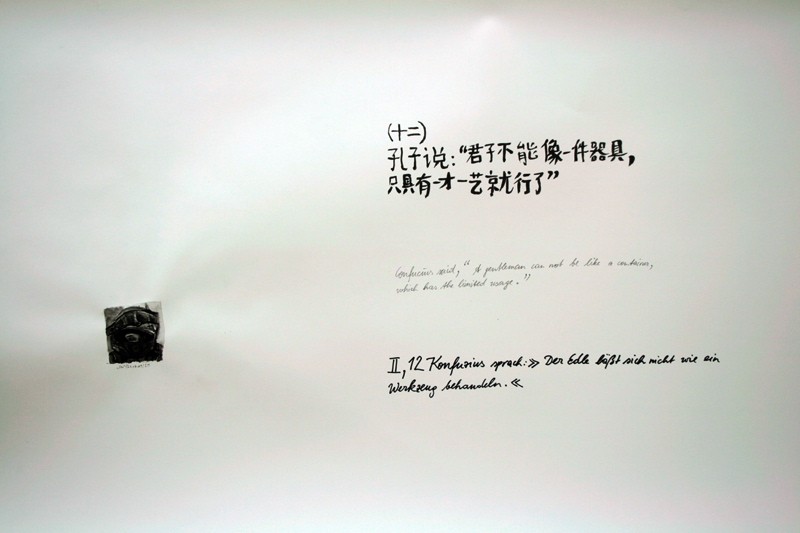 (十二)
孔子说:“君子不能像一件器具,
只具有一才一艺就行了”
Confucius said, “A gentleman can not be like a container,
which has the limited usage.”
II, 12 Konfuzius sprach: » Der Edle läßt sich nicht wie ein
Werkzeug behandeln. «